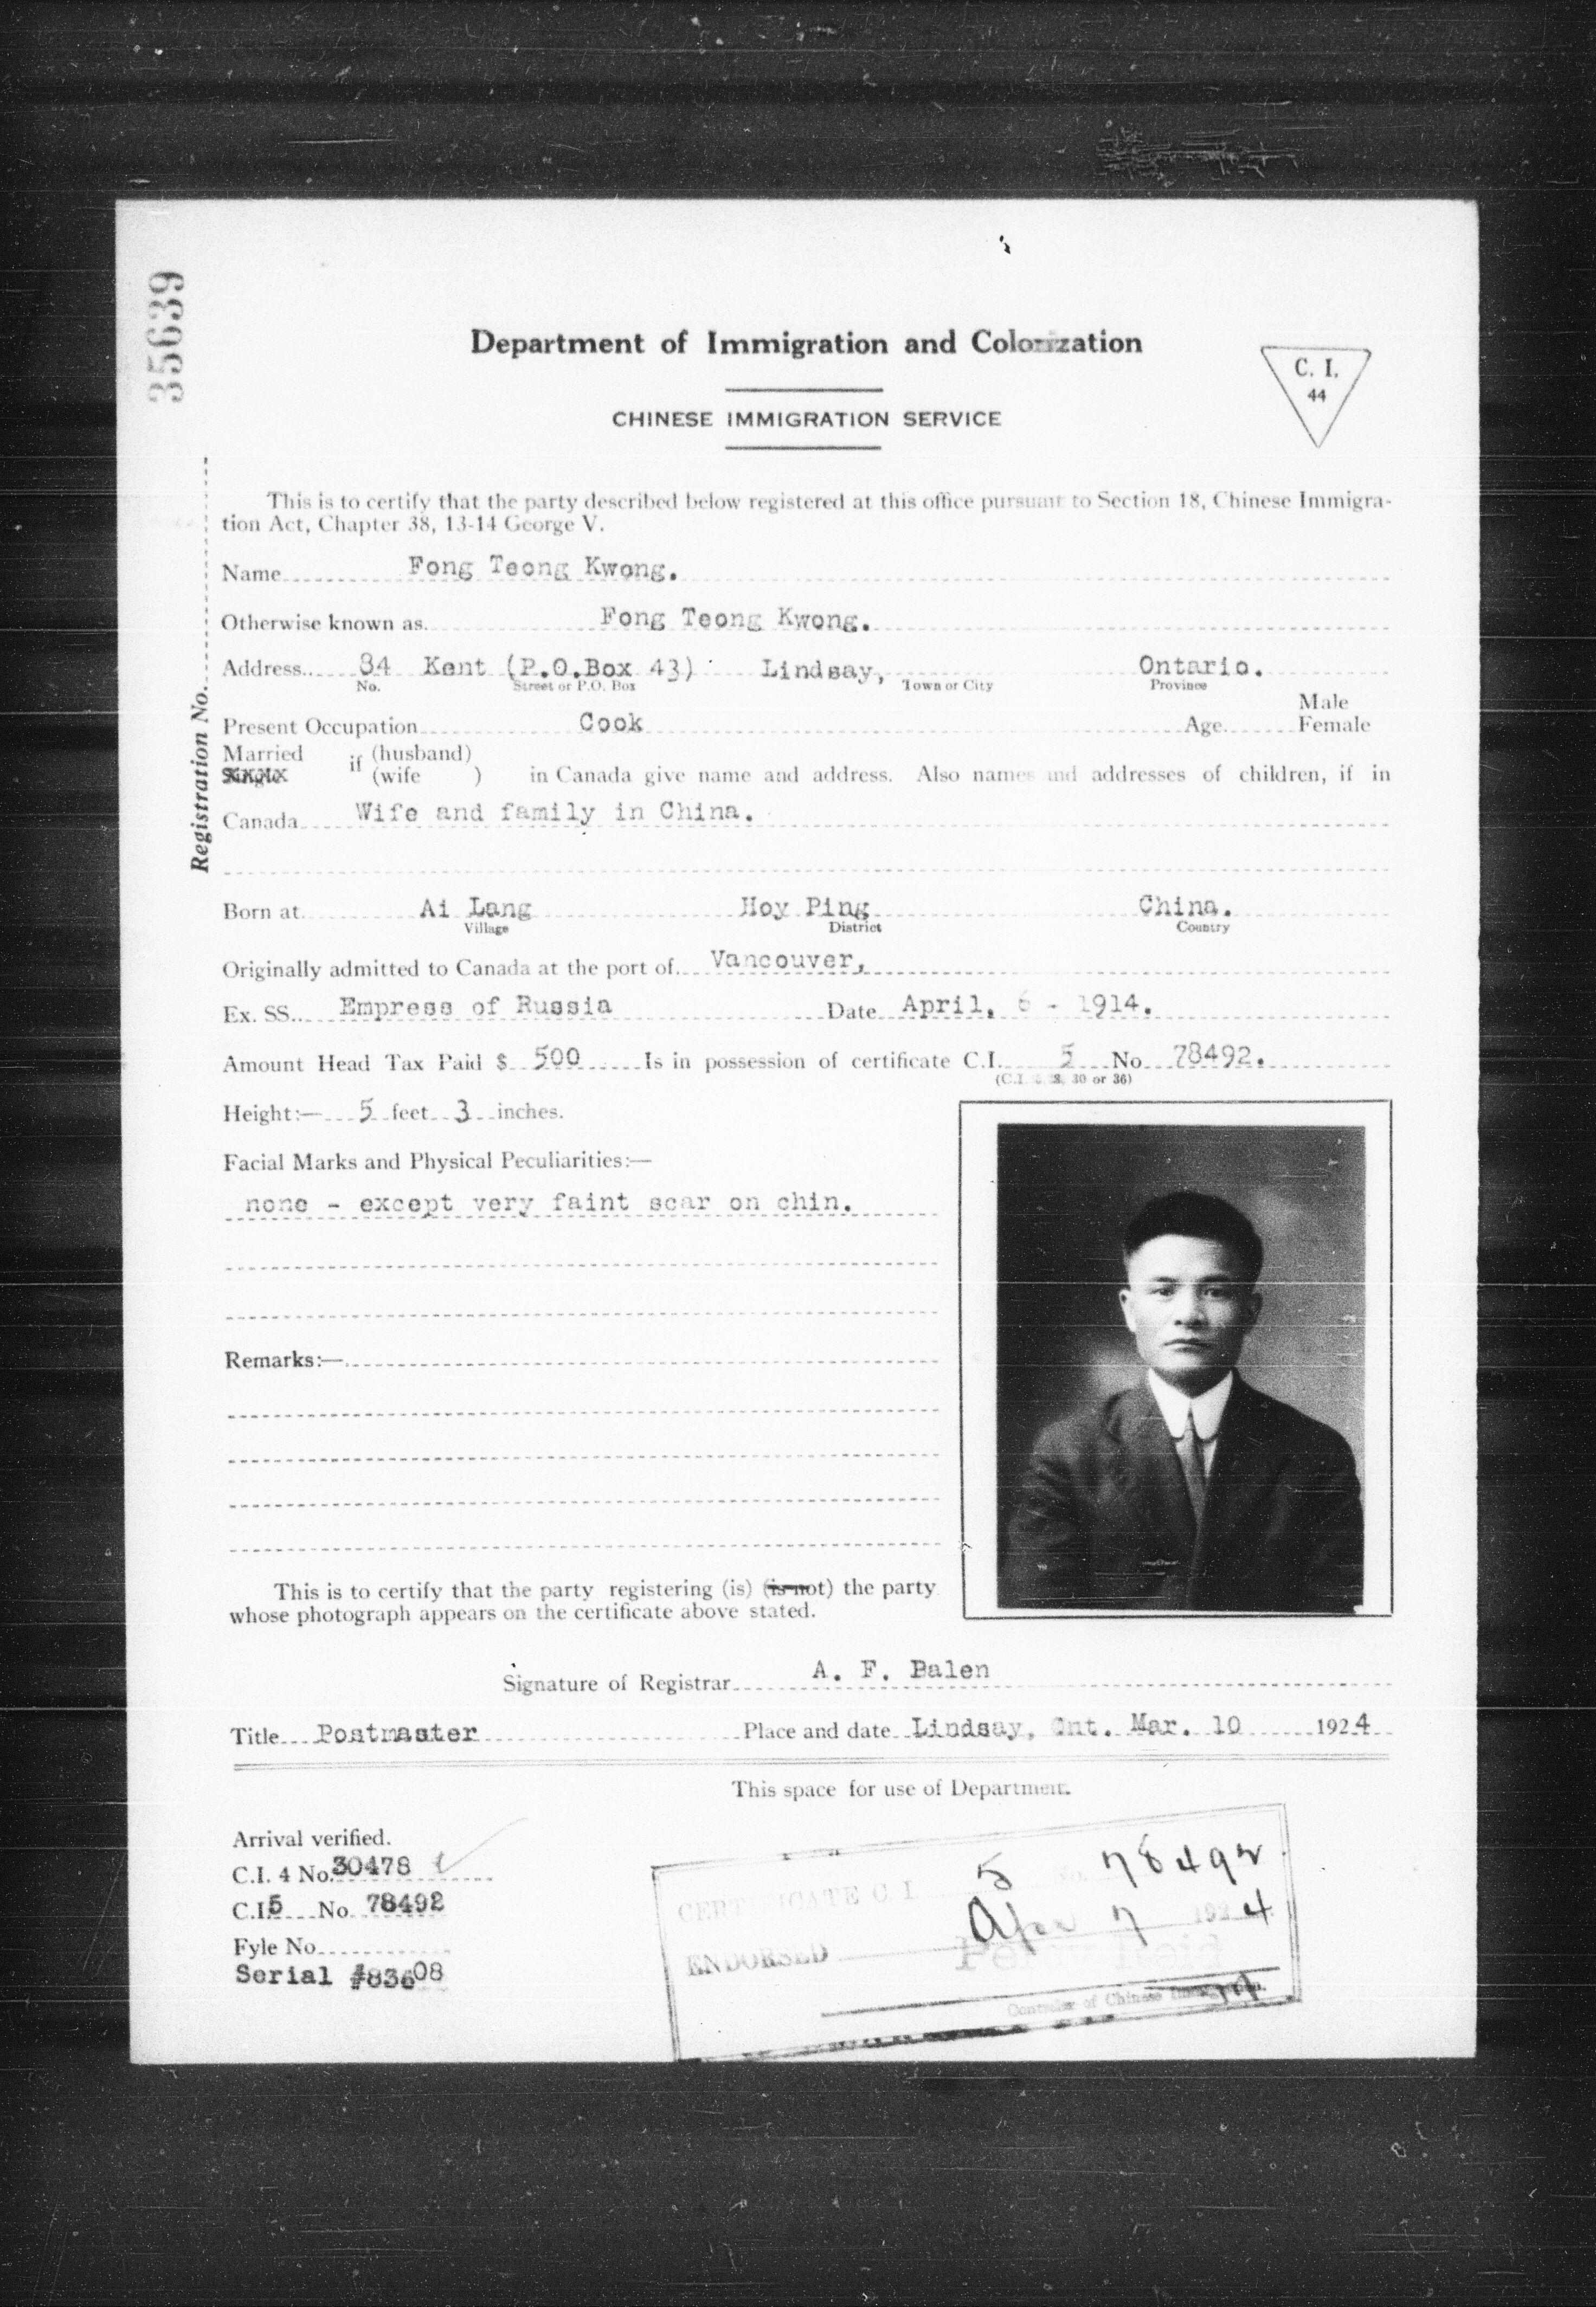 35639
Department of Immigration and Colonization
C. I.
44
CHINESE IMMIGRATION SERVICE
This is to certify that the party described below registered at this office pursuant to Section 18, Chinese Immigra-
tion Act, Chapter 38, 13-14 George V.
Registration No.
Name Fong Teong Kwong.
Otherwise known as Fong Teong Kwong.
Address 84 Kent (P.O.Box 43) Lindsay, Ontario.
No. Street or P.O. Box Town or City Province
Male
Present Occupation Cook Age Female
Married if (husband)
Single (wife ) in Canada give name and address. Also names and addresses of children, if in
Canada Wife and family in China.
Born at Ai Lang Hoy Ping China.
Village District Country
Originally admitted to Canada at the port of Vancouver,
Ex. SS. Empress of Russia Date April, 6 - 1914.
Amount Head Tax Paid $ 500 Is in possession of certificate C.I. 5 No 78492.
(C.I. 28, 30 or 36)
Height:— 5 feet 3 inches.
Facial Marks and Physical Peculiarities:—
none - except very faint scar on chin.
Remarks:—
This is to certify that the party registering (is) (is not) the party
whose photograph appears on the certificate above stated.
Signature of Registrar A. F. Balen
Title Postmaster Place and date Lindsay, Ont. Mar. 10 1924
This space for use of Department.
Arrival verified.
C.I. 4 No. 30478
C.I. 5 No. 78492
Fyle No.
Serial #83608
CERTIFICATE C I 5 No. 78492
ENDORSED Apr 7 1924
Controller of Chinese